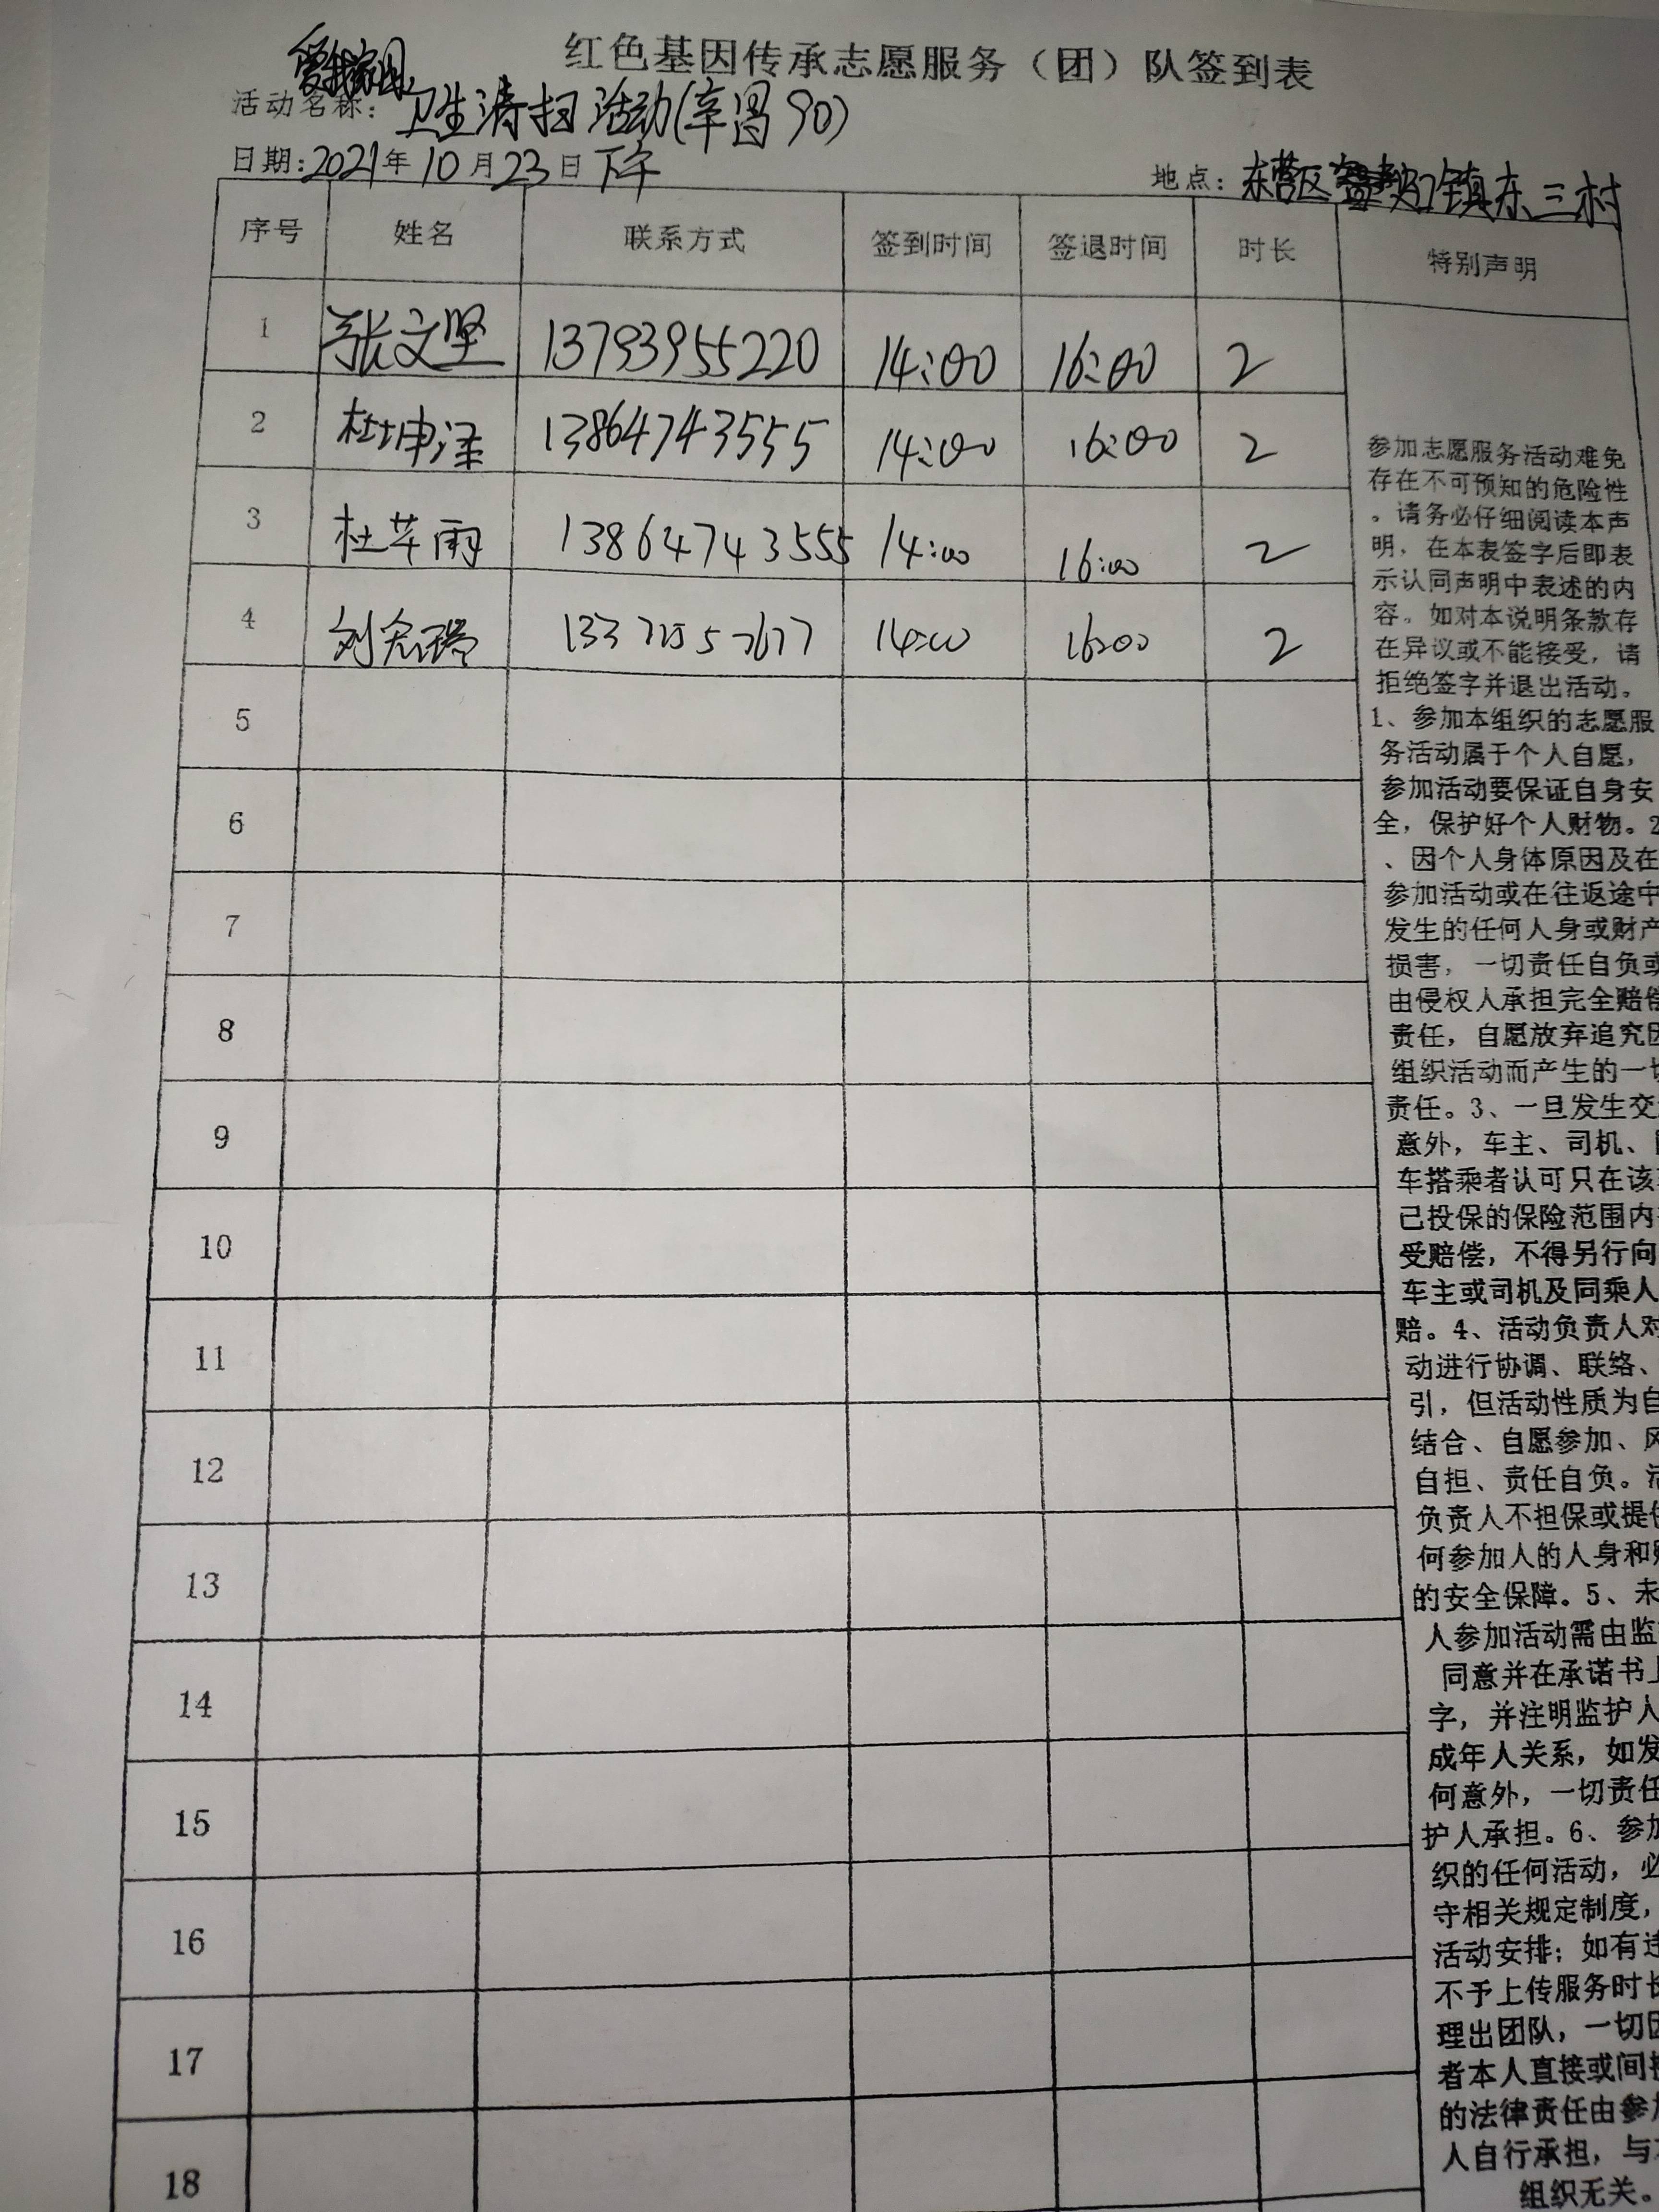 红色基因传承志愿服务（团）队签到表
活动名称：卫生清扫活动(辛昌90)
日期:2021年10月23日下午 地点：东营区镇东三村
序号 姓名 联系方式 签到时间 签退时间 时长 特别声明
1 张文坚 13793955220 14:00 16:00 2
2 杜坤泽 13864743555 14:00 16:00 2
3 杜苹雨 13864743555 14:00 16:00 2
4 刘 14:00 16:00 2
5
6
7
8
9
10
11
12
13
14
15
16
17
18
参加志愿服务活动难免
存在不可预知的危险性
。请务必仔细阅读本声
明，在本表签字后即表
示认同声明中表述的内
容。如对本说明条款存
在异议或不能接受，请
拒绝签字并退出活动。
1、参加本组织的志愿服
务活动属于个人自愿，
参加活动要保证自身安
全，保护好个人财物。2
、因个人身体原因及在
参加活动或在往返途中
发生的任何人身或财产
损害，一切责任自负或
由侵权人承担完全赔偿
责任，自愿放弃追究因
组织活动而产生的一切
责任。3、一旦发生交
意外，车主、司机、
车搭乘者认可只在该
已投保的保险范围内
受赔偿，不得另行向
车主或司机及同乘人
赔。4、活动负责人对
动进行协调、联络、
引，但活动性质为自
结合、自愿参加、风
自担、责任自负。活
负责人不担保或提供
何参加人的人身和财
的安全保障。5、未
人参加活动需由监
同意并在承诺书上
字，并注明监护人
成年人关系，如发
何意外，一切责任
护人承担。6、参加
织的任何活动，必
守相关规定制度，
活动安排；如有违
不予上传服务时长
理出团队，一切因
者本人直接或间接
的法律责任由参加
人自行承担，与
组织无关。